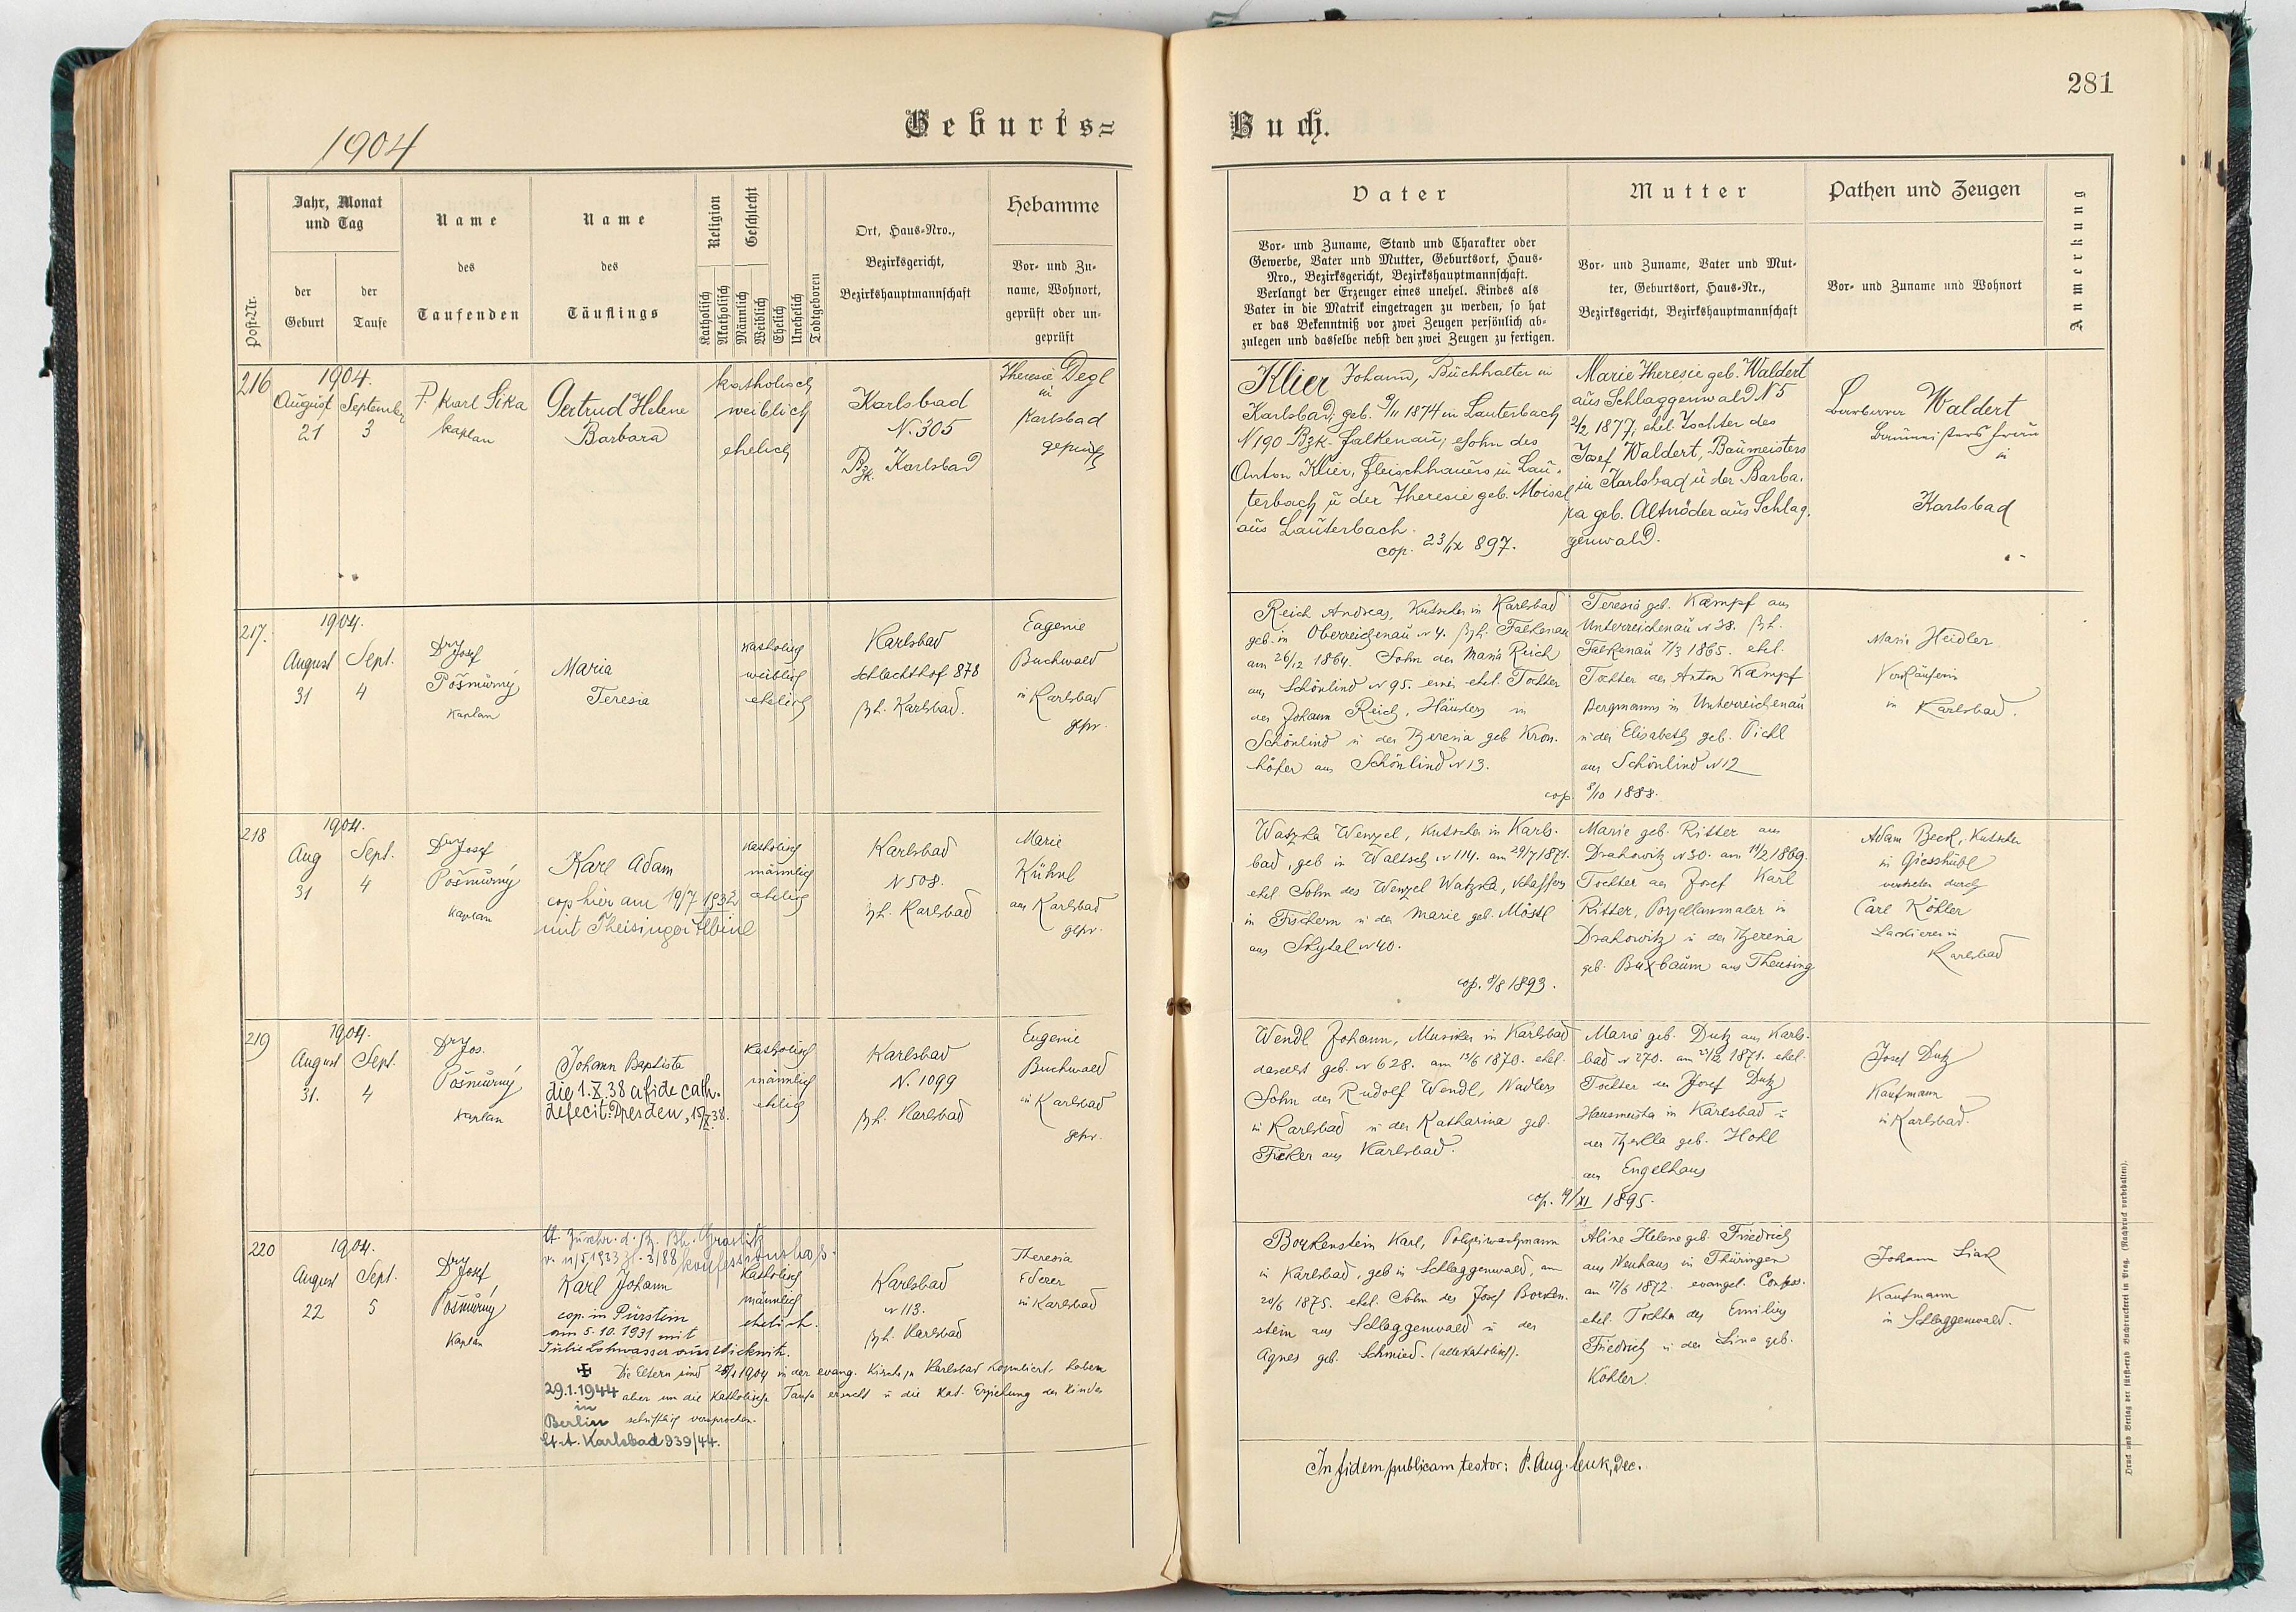 281
Geburts=
Buch.
1904
Post-Nr.
Jahr, Monat
und Tag
der
Geburt
der
Taufe
Name
des
Taufenden
Name
des
Täuflings
Religion
Katholisch
Akatholisch
Geschlecht
Männlich
Weiblich
Ehelich
Unehelich
Todtgeboren
Ort, Haus-Nro.,
Bezirksgericht,
Bezirkshauptmannschaft
Hebamme
Vor- und Zu-
name, Wohnort,
geprüft oder un-
geprüft
Vater
Vor- und Zuname, Stand und Charakter oder
Gewerbe, Vater und Mutter, Geburtsort, Haus-
Nro., Bezirksgericht, Bezirkshauptmannschaft.
Verlangt der Erzeuger eines unehel. Kindes als
Vater in die Matrik eingetragen zu werden, so hat
er das Bekenntniß vor zwei Zeugen persönlich ab-
zulegen und dasselbe nebst den zwei Zeugen zu fertigen.
Mutter
Vor- und Zuname, Vater und Mut-
ter, Geburtsort, Haus-Nr.,
Bezirksgericht, Bezirkshauptmannschaft
Pathen und Zeugen
Vor- und Zuname und Wohnort
Anmerkung
216
1904.
August September
21 3
P. Karl Sika
Kaplan
Gertrud Helene
Barbara
katholisch
weiblich
ehelich
Karlsbad
N. 305
Bzk. Karlsbad
Theresie Degl
in
Karlsbad
geprüft
Klier Johann, Buchhalter in
Karlsbad, geb. 9/11 1874 in Lauterbach
N 190 Bzk. Falkenau, Sohn des
Anton Klier, Fleischhauers in Lau-
terbach u der Theresie geb. Moissl
aus Lauterbach.
cop. 23/IX 897.
Marie Theresie geb. Waldert
aus Schlaggenwald N 5
2/2 1877, ehel. Tochter des
Josef Waldert, Baumeisters
in Karlsbad u der Barba-
ra geb. Altnöder aus Schlag-
genwald.
Barbara Waldert
Baumeisters Frau
in
Karlsbad
217.
1904.
August Sept.
31 4
Dr Josef
Pošmůrný
Kaplan
Maria
Teresia
katholisch
weiblich
ehelich
Karlsbad
Schlachthof 878
Bzh. Karlsbad.
Eugenie
Buchwald
in Karlsbad
gepr.
Reich Andreas, Kutscher in Karlsbad
geb. in Oberreichenau N 4. Bzh. Falkenau
am 26/12 1864. Sohn der Maria Reich
aus Schönlind N 95. einer ehel. Tochter
des Johann Reich, Häuslers in
Schönlind u der Theresia geb Kron-
höfer aus Schönlind N 13.
Teresia geb. Kaempf aus
Unterreichenau N 38. Bzh.
Falkenau 7/3 1865. ehel.
Tochter des Anton Kaempf
Bergmanns in Unterreichenau
u der Elisabeth geb. Pichl
aus Schönlind N 12
cop. 8/10 1888.
Maria Heidler
Verkäuferin
in Karlsbad.
218
1904.
Aug Sept.
31 4
Dr Josef
Pošmůrný
Kaplan
Karl Adam
cop hier am 19/7 1932
mit Theisinger Albine
katholisch
männlich
ehelich
Karlsbad
N 508.
Bzh. Karlsbad
Marie
Kühnl
aus Karlsbad
gepr.
Watzka Wenzel, Kutscher in Karls-
bad, geb in Waltsch N 114. am 29/7 1871.
ehel Sohn des Wenzel Watzka, Schaffers
in Fischern u der Marie geb. Möstl
aus Skytal N 40.
cop. 8/8 1893.
Marie geb. Ritter aus
Drahowitz N 30. am 14/2 1869.
Tochter des Josef Karl
Ritter, Porzellanmaler in
Drahowitz u der Theresia
geb. Buxbaum aus Theusing
Adam Beck, Kutscher
in Giesshübl
vertreten durch
Carl Köhler
Lackierer in
Karlsbad
219
1904.
August Sept.
31. 4
Dr Jos.
Pošmůrný
Kaplan
Johann Baptista
die 1.X.38 a fide cath.
defecit: Dresden, 15/X.38.
katholisch
männlich
ehelich
Karlsbad
N. 1099
Bzh. Karlsbad
Eugenie
Buchwald
in Karlsbad
gepr.
Wendl Johann, Musiker in Karlsbad
daselbst geb. N 628. am 13/6 1870. ehel.
Sohn des Rudolf Wendl, Nadlers
in Karlsbad u der Katharina geb.
Ficker aus Karlsbad.
Maria geb. Dutz aus Karls-
bad N 270. am 23/12 1871. ehel.
Tochter des Josef Dutz
Hausmeister in Karlsbad u
der Thekla geb. Hohl
aus Engelhaus
cop. 19/XI 1895.
Josef Dutz
Kaufmann
in Karlsbad.
220
1904.
August Sept.
22 5
Dr Josef
Pošmůrný
Kaplan
lt. Zuschr. d. Bz. Bh. Graslitz
v. 11/5 1933 Zl. 3/88 konfessionslos.
Karl Johann
cop. in Pürstein
am 5.10.1931 mit
Julie Lohwasser aus Wickwitz.
katholisch
männlich
ehelich.
Karlsbad
N 113.
Bzh. Karlsbad
Theresia
Ederer
in Karlsbad
Die Eltern sind 1904 in der evang. Kirche in Karlsbad kopuliert. haben
aber um die katholische Taufe ersucht u die kat. Erziehung des Kindes
schriftlich versprochen.
29.1.1944
in
Berlin
St. A. Karlsbad 939/44.
Borkenstein Karl, Polizeiwachmann
in Karlsbad, geb in Schlaggenwald, am
20/6 1875. ehel. Sohn des Josef Borken-
stein aus Schlaggenwald u der
Agnes geb. Schmied. (alle katholisch).
Aline Helene geb. Friedrich
aus Neuhaus in Thüringen
am 17/6 1872. evangel. Confess.
ehel. Tochter des Emilius
Friedrich u der Lina geb.
Köhler.
Johann Siard
Kaufmann
in Schlaggenwald.
In fidem publicam testor: P. Aug. Leuk, Dec.
Druck und Verlag der fürst-erzb Buchdruckerei in Prag. (Nachdruck vorbehalten).